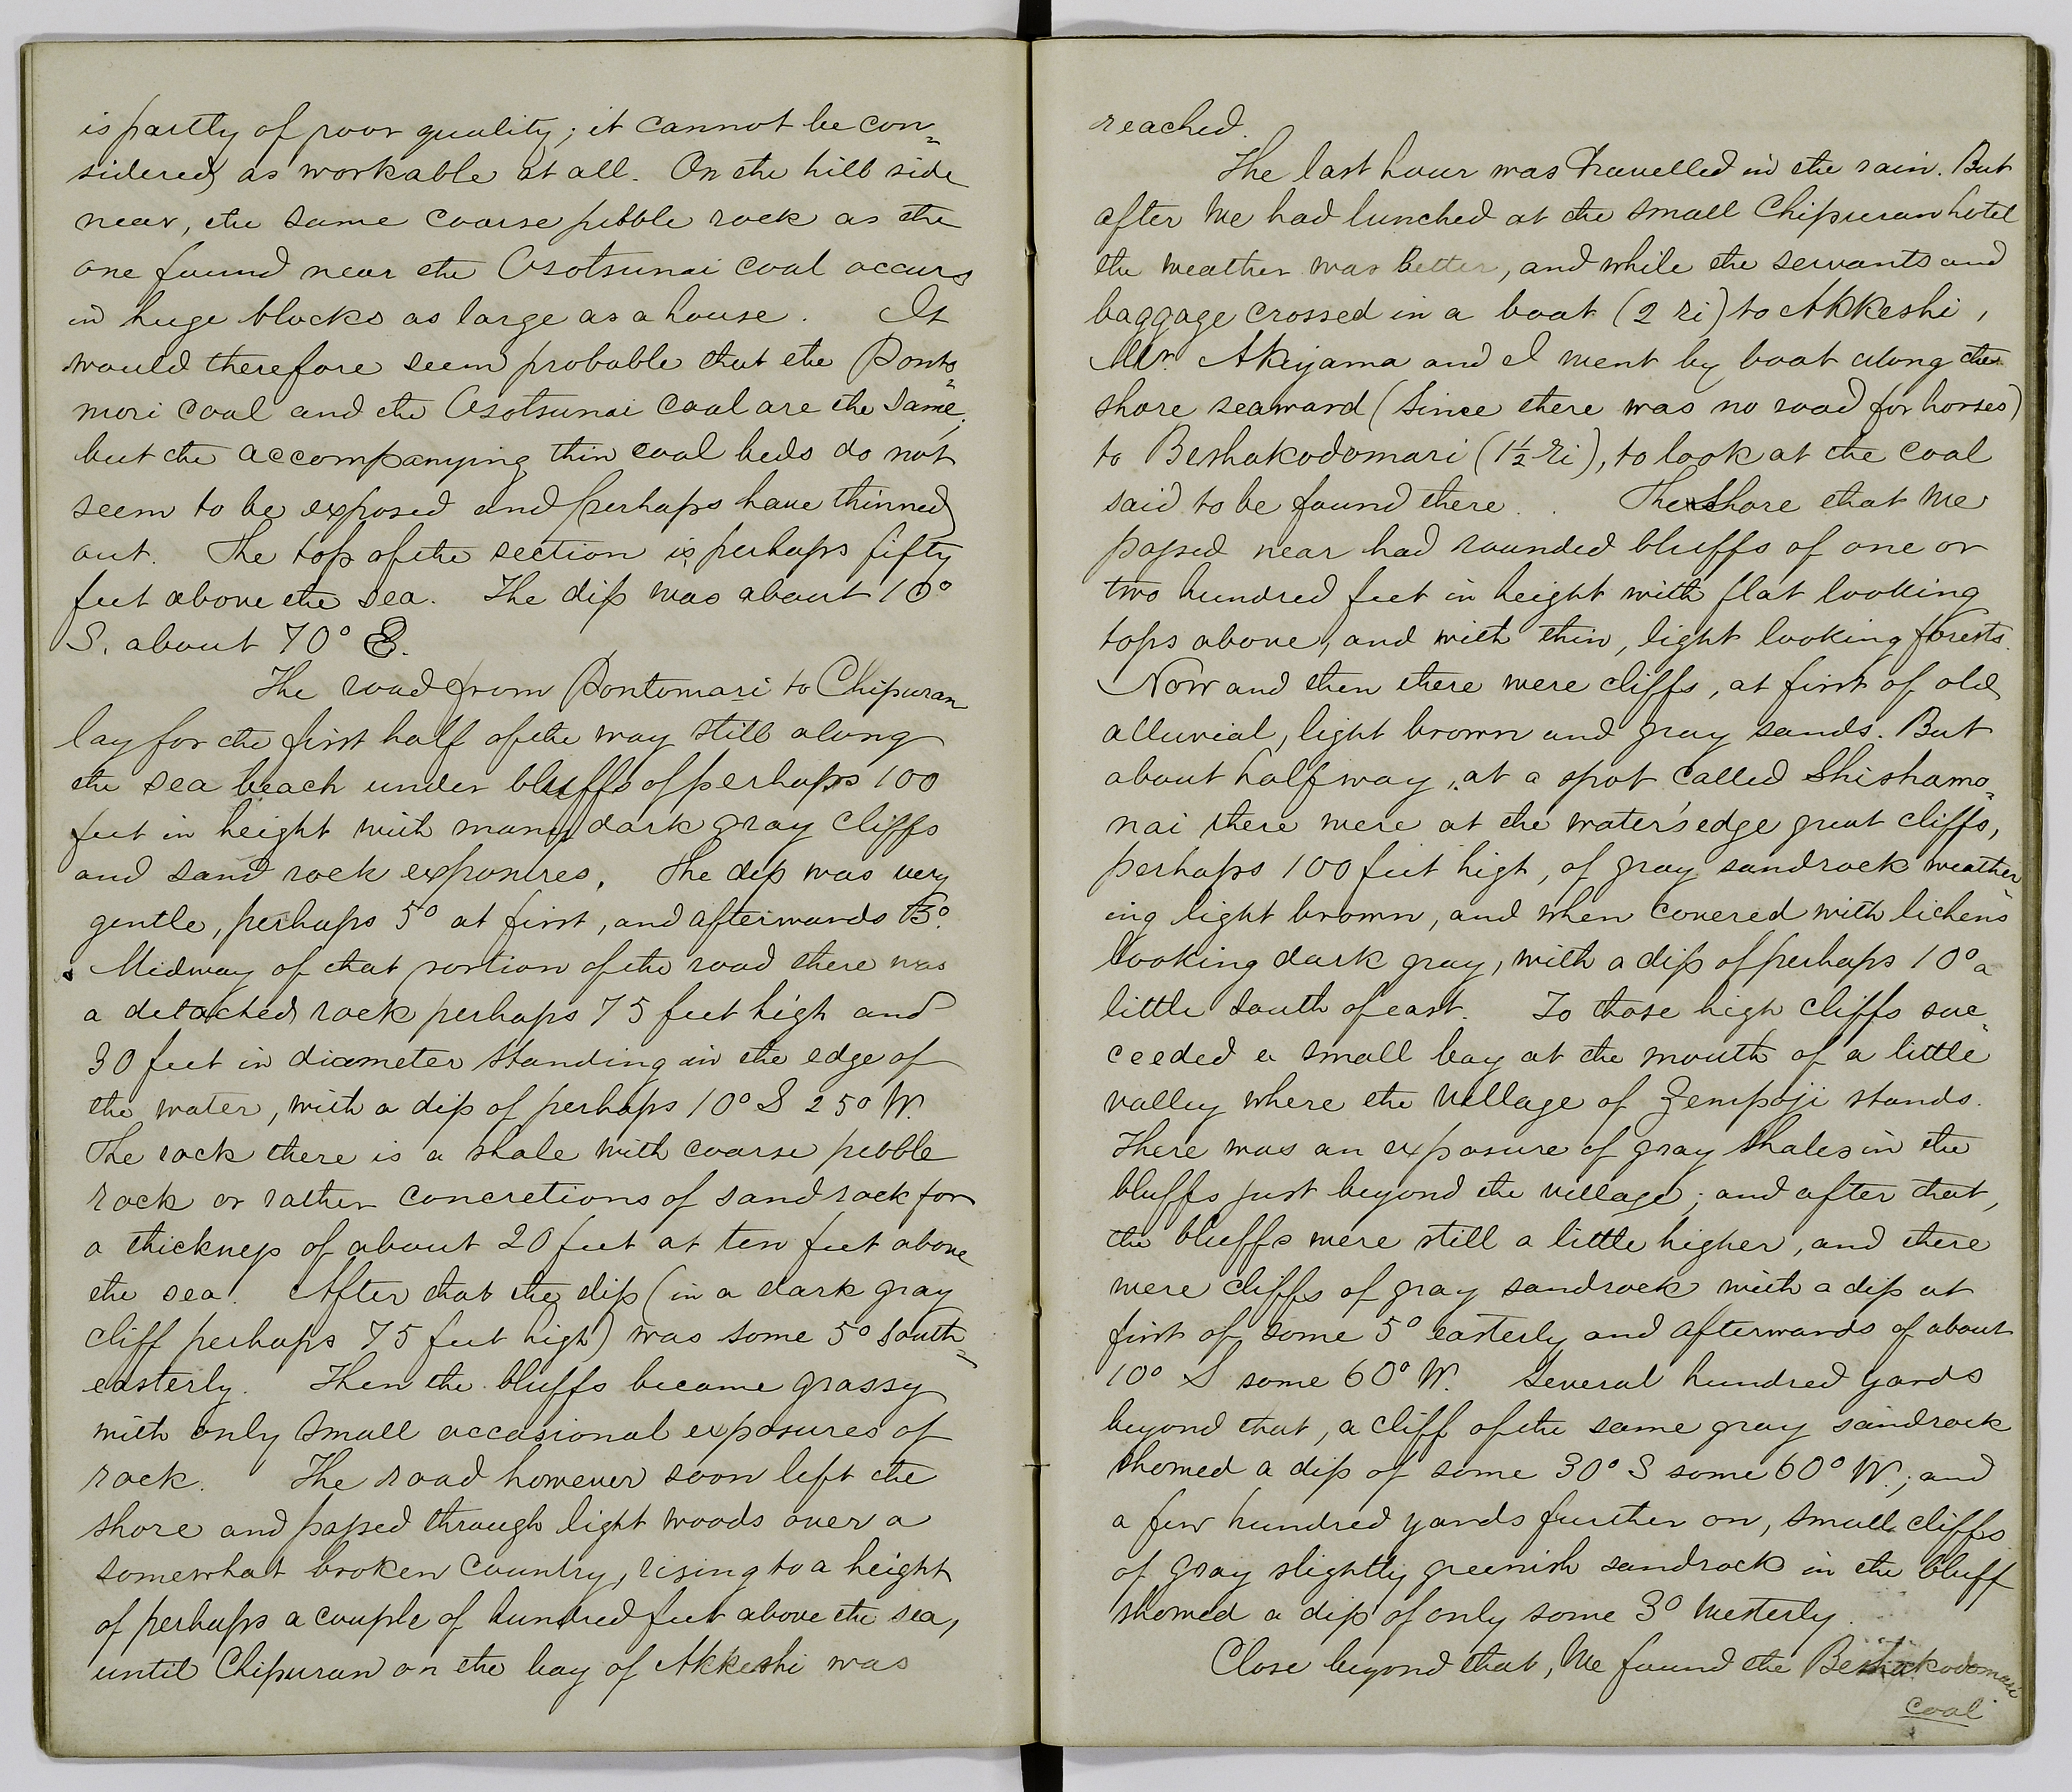 is partly of poor quality; it cannot be con=
sidered as workable at all. On the hill side
near, the same coarse pebble rock as the
one found near the Osotsunai coal occurs
in huge blocks as large as a house. It
would therefore seem probable that the Ponto=
mori coal and the Osotsunai coal are the same;
but the accompanying thin coal beds do not
seem to be exposed and perhaps have thinned
out. The top of the section is perhaps fifty
feet above the sea. The dip was about 10°
S. about 70° E.
The road from Pontomari to Chipuran
lay for the first half of the way still along
the sea beach under bluffs of perhaps 100
feet in height with many dark gray cliffs
and sand rock exposures. The dip was very
gentle, perhaps 5° at first, and afterwards 15°.
Midway of that portion of the road there was
a detached rock perhaps 75 feet high and
30 feet in diameter standing in the edge of
the water, with a dip of perhaps 10° S 25° W.
The rock there is a shale with coarse pebble
rock or rather concretions of sand rock for
a thickness of about 20 feet at ten feet above
the sea. After that the dip (in a dark gray
cliff perhaps 75 feet high) was some 5° south=
easterly. Then the bluffs became grassy
with only small occasional exposures of
rock. The road however soon left the
shore and passed through light woods over a
somewhat broken country, rising to a height
of perhaps a couple of hundred feet above the sea,
until Chipuran on the bay of Akkeshi was
reached.
The last hour was travelled in the rain. But
after we had lunched at the small Chipuran hotel
the weather was better, and while the servants and
baggage crossed in a boat (2 ri) to Akkeshi,
Mr. Akiyama and I went by boat along the
shore seaward (since there was no road for horses)
to Beshakodomari (1½ ri), to look at the coal
said to be found there. The shore that we
passed near had rounded bluffs of one or
two hundred feet in height with flat looking
tops above, and with thin, light looking forests.
Now and then there were cliffs, at first of old
alluvial, light brown and gray sands. But
about half way, at a spot called Shishamo=
nai there were at the water's edge great cliffs,
perhaps 100 feet high, of gray sandrock weather=
ing light brown, and when covered with lichens
looking dark gray, with a dip of perhaps 10° a
little south of east. To those high cliffs suc=
ceeded a small bay at the mouth of a little
valley where the village of Zempoji stands.
There was an exposure of gray shales in the
bluffs just beyond the village; and after that,
the bluffs were still a little higher, and there
were cliffs of gray sandrock with a dip at
first of some 5° easterly and afterwards of about
10° S some 60° W. Several hundred yards
beyond that, a cliff of the same gray sandrock
showed a dip of some 30° S some 60° W.; and
a few hundred yards further on, small cliffs
of gray slightly greenish sandrock in the bluff
showed a dip of only some 3° westerly.
Close beyond that, we found the Beshakodomari
coal